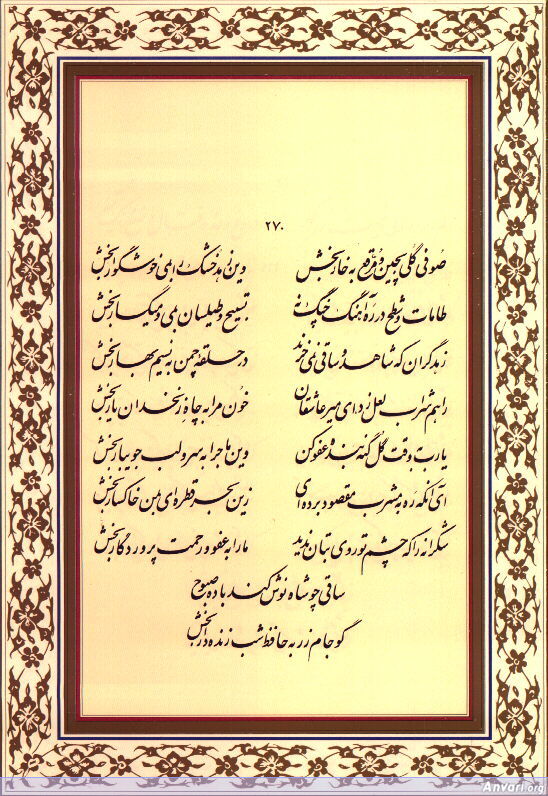 ۲۷۰
صوفی گلی بچین و مرقع به خار بخش وین زهد خشک را بمی خوشگوار بخش
طامات و شطح در ره آهنگ چنگ نه تسبیح و طیلسان بمی و میگسار بخش
زهد گران که شاهد و ساقی نمی‌خرند در حلقه چمن به نسیم بهار بخش
راهم شراب لعل زد ای میر عاشقان خون مرا به چاه زنخدان یار بخش
یارب بوقت گل گنه بنده عفو کن وین ماجرا به سرو لب جویبار بخش
ای آنکه ره به مشرب مقصود برده‌ای زین بحر قطره‌ای بمن خاکسار بخش
شکرانه را که چشم تو روی بتان ندید ما را به عفو و رحمت پروردگار بخش
ساقی چو شاه نوش کند باده صبوح
گو جام زر به حافظ شب زنده‌دار بخش
Anvari.org